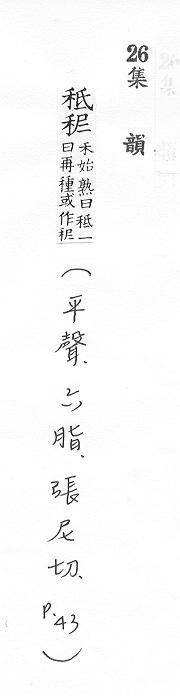 26集 韻
秪秜
禾始熟曰秪一
曰再種或作秜
(平聲、六脂、張尼切、P.43)